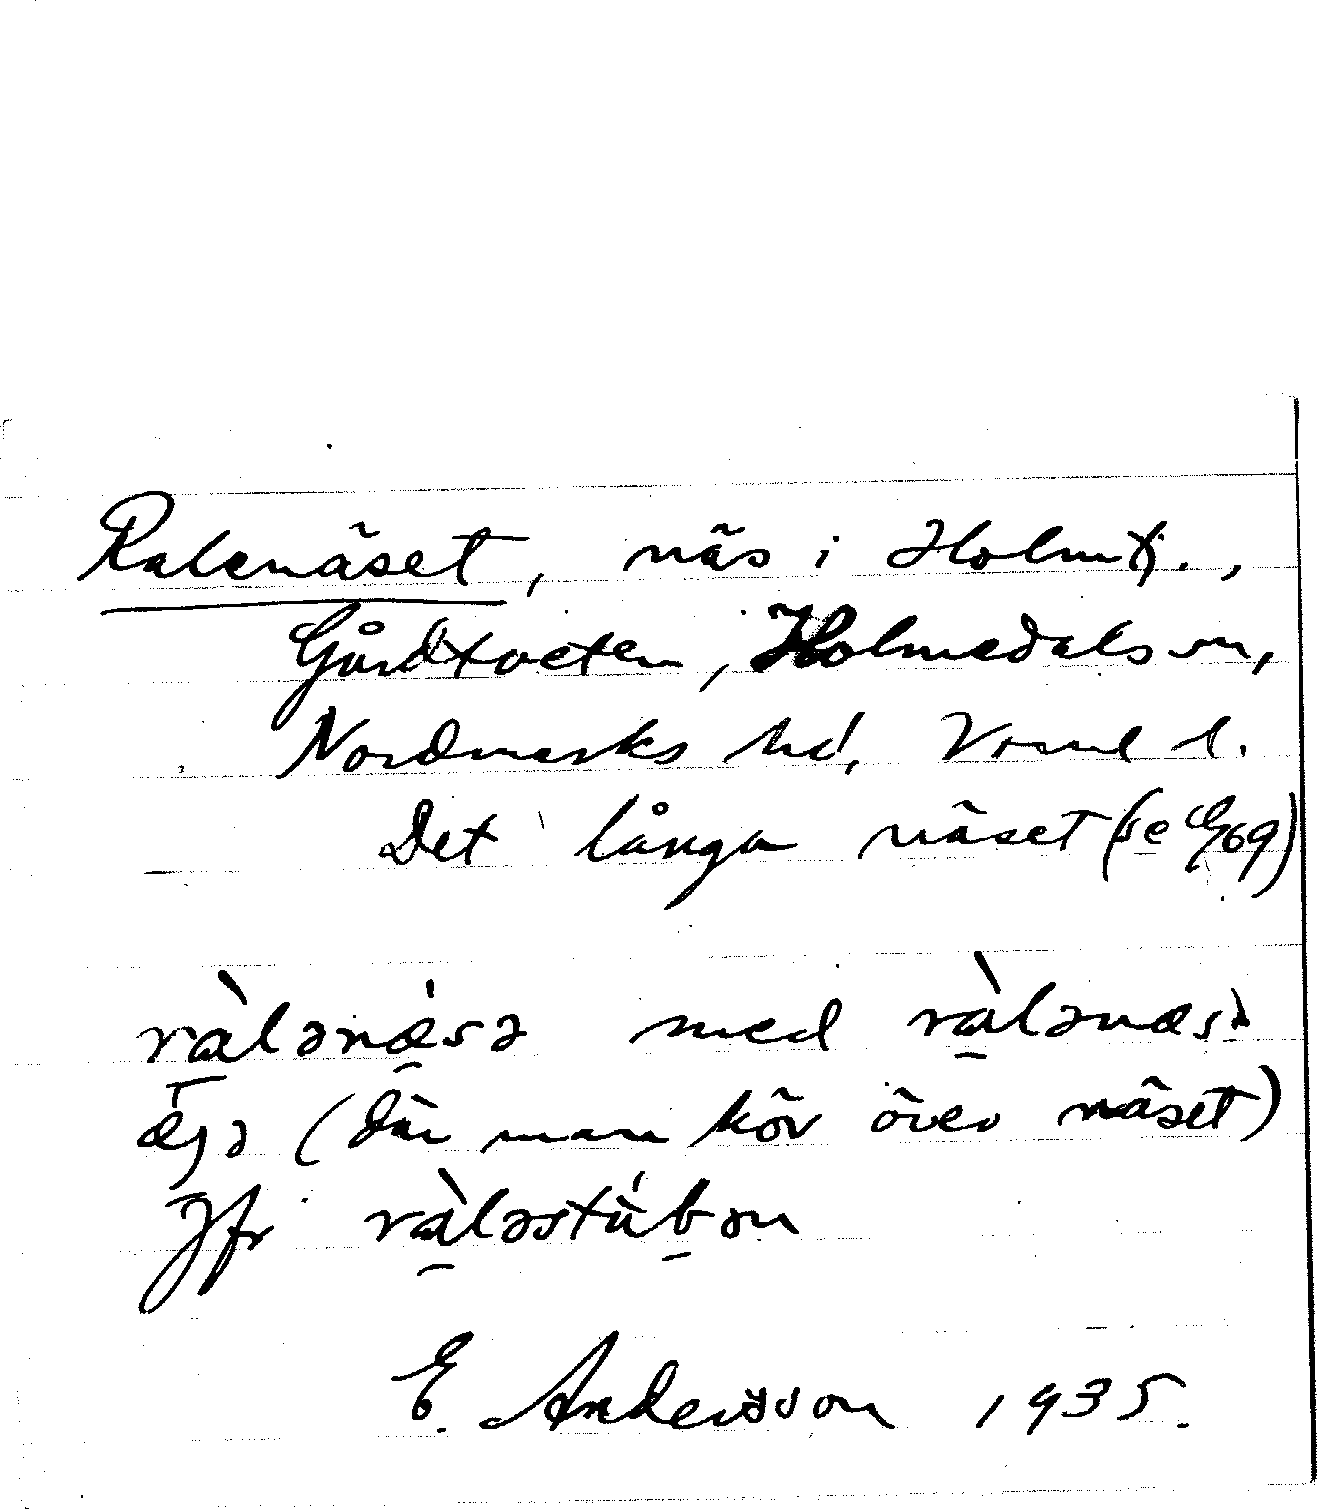 Ralenäset, näs i Holmtj.,
Gårdtveten, Holmedals sn,
Nordmarks hd, Vrml l.
Det långa näset (se 69)
ràlənǽsə med ràlənæsə
æjə (där man kör över näset)
Jfr ràləstúbən
E. Andersson 1935.